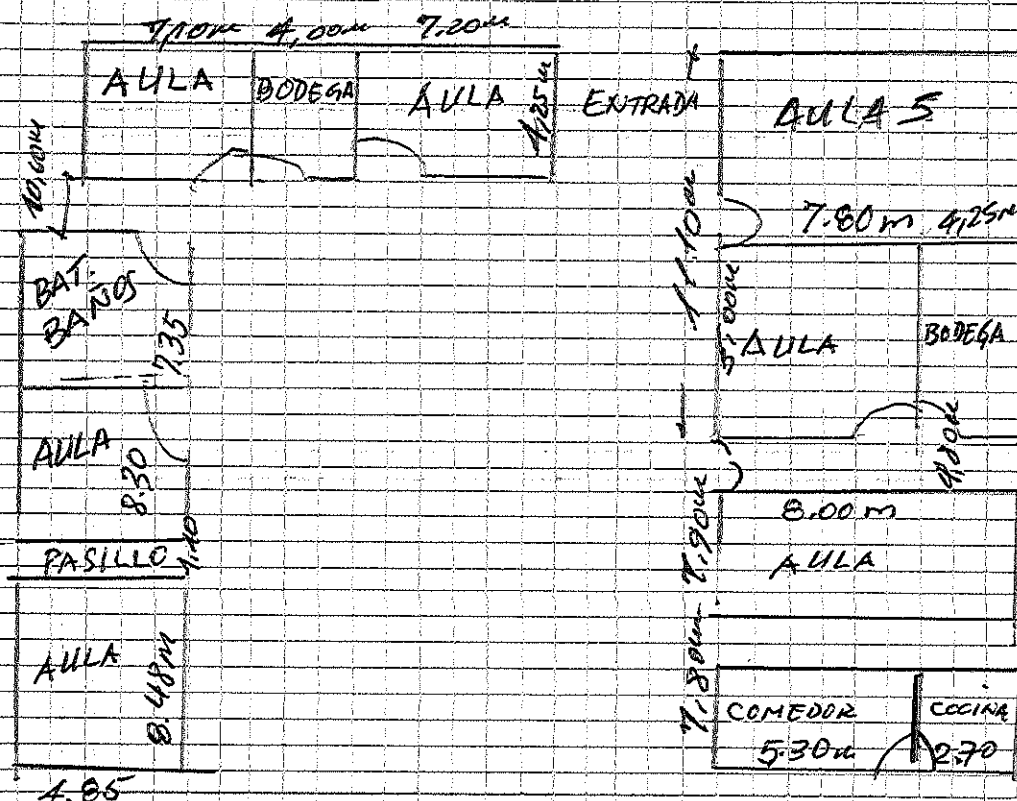 7,10m 4,00m 7.20m
AULA BODEGA AULA 4,25m ENTRADA AULA 5
10,60m
11.10m
7.80m 4,25m
BAT. BAÑOS
7.35
5,00m
AULA BODEGA
AULA
8.30
4,80m
8.00m
PASILLO 1,10
7,90m
AULA
AULA
8.48M
7,80m
COMEDOR COCINA
5.30m 2.70
4.85